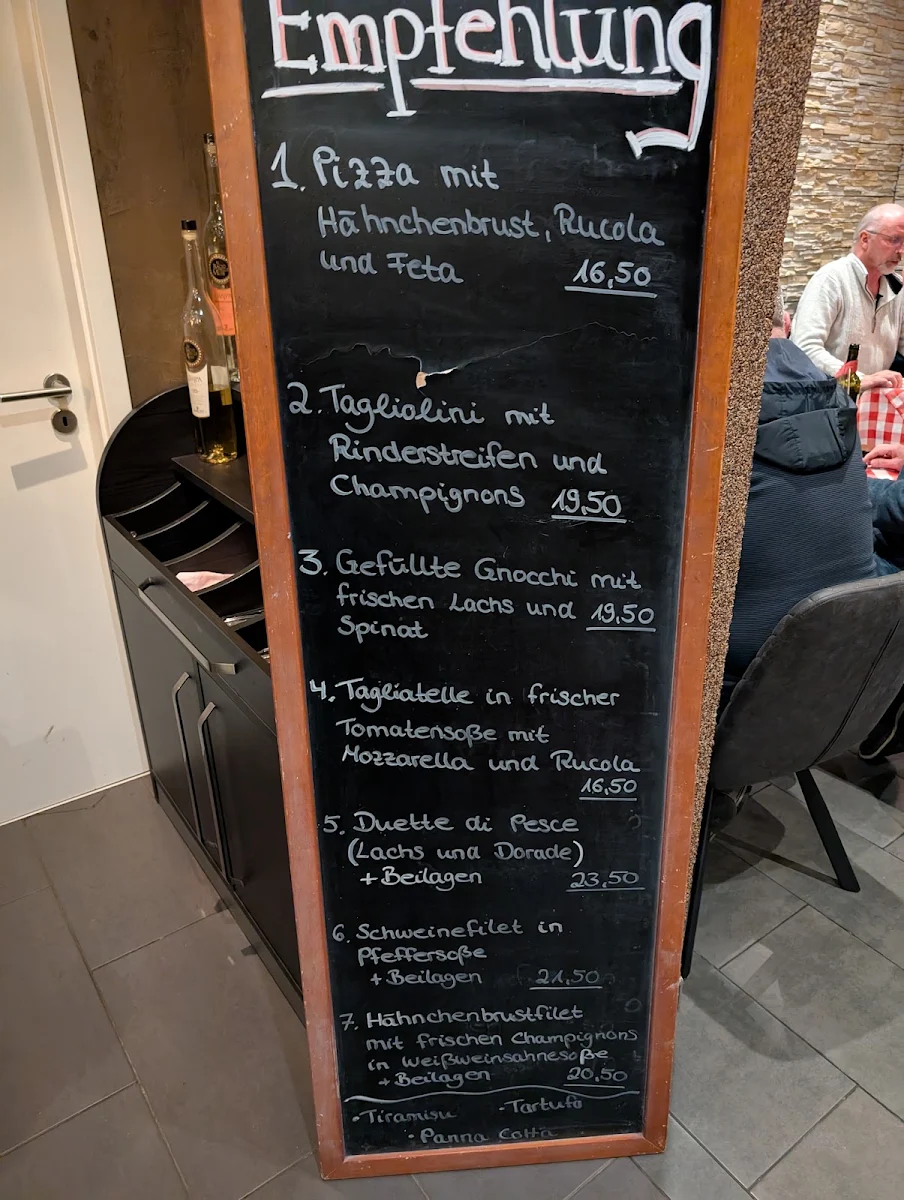 Empfehlung
1. Pizza mit
Hähnchenbrust, Rucola
und Feta 16,50
2. Tagliolini mit
Rinderstreifen und
Champignons 19,50
3. Gefüllte Gnocchi mit
frischen Lachs und 19,50
Spinat
4. Tagliatelle in frischer
Tomatensoße mit
Mozzarella und Rucola
16,50
5. Duette di Pesce
(Lachs und Dorade)
+ Beilagen 23,50
6. Schweinefilet in
Pfeffersoße
+ Beilagen 21,50
7. Hähnchenbrustfilet
mit frischen Champignons
in Weißweinsahnesoße
+ Beilagen 20,50
· Tiramisu · Tartufo
· Panna Cotta